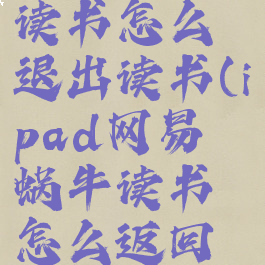 读书怎么
退出读书(i
pad网易
蜗牛读书
怎么返回